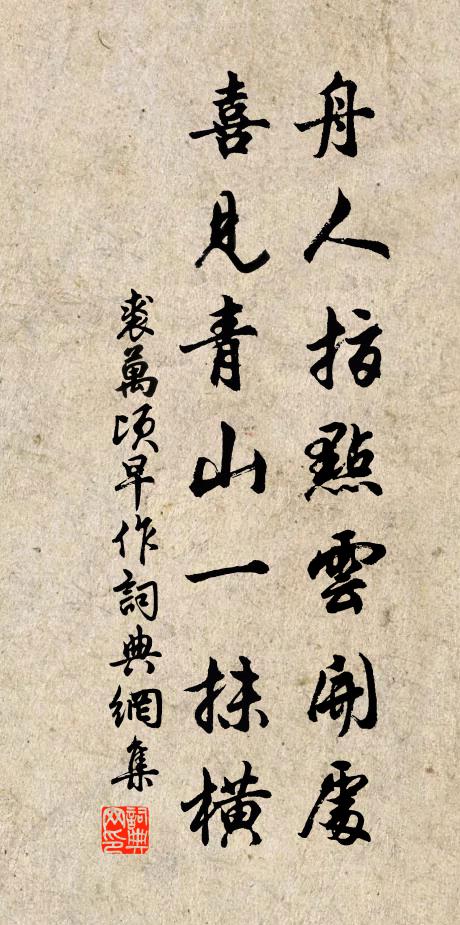 舟人指點雲開處
喜見青山一抹橫
裘萬頃早作詞典網集
詞典網印